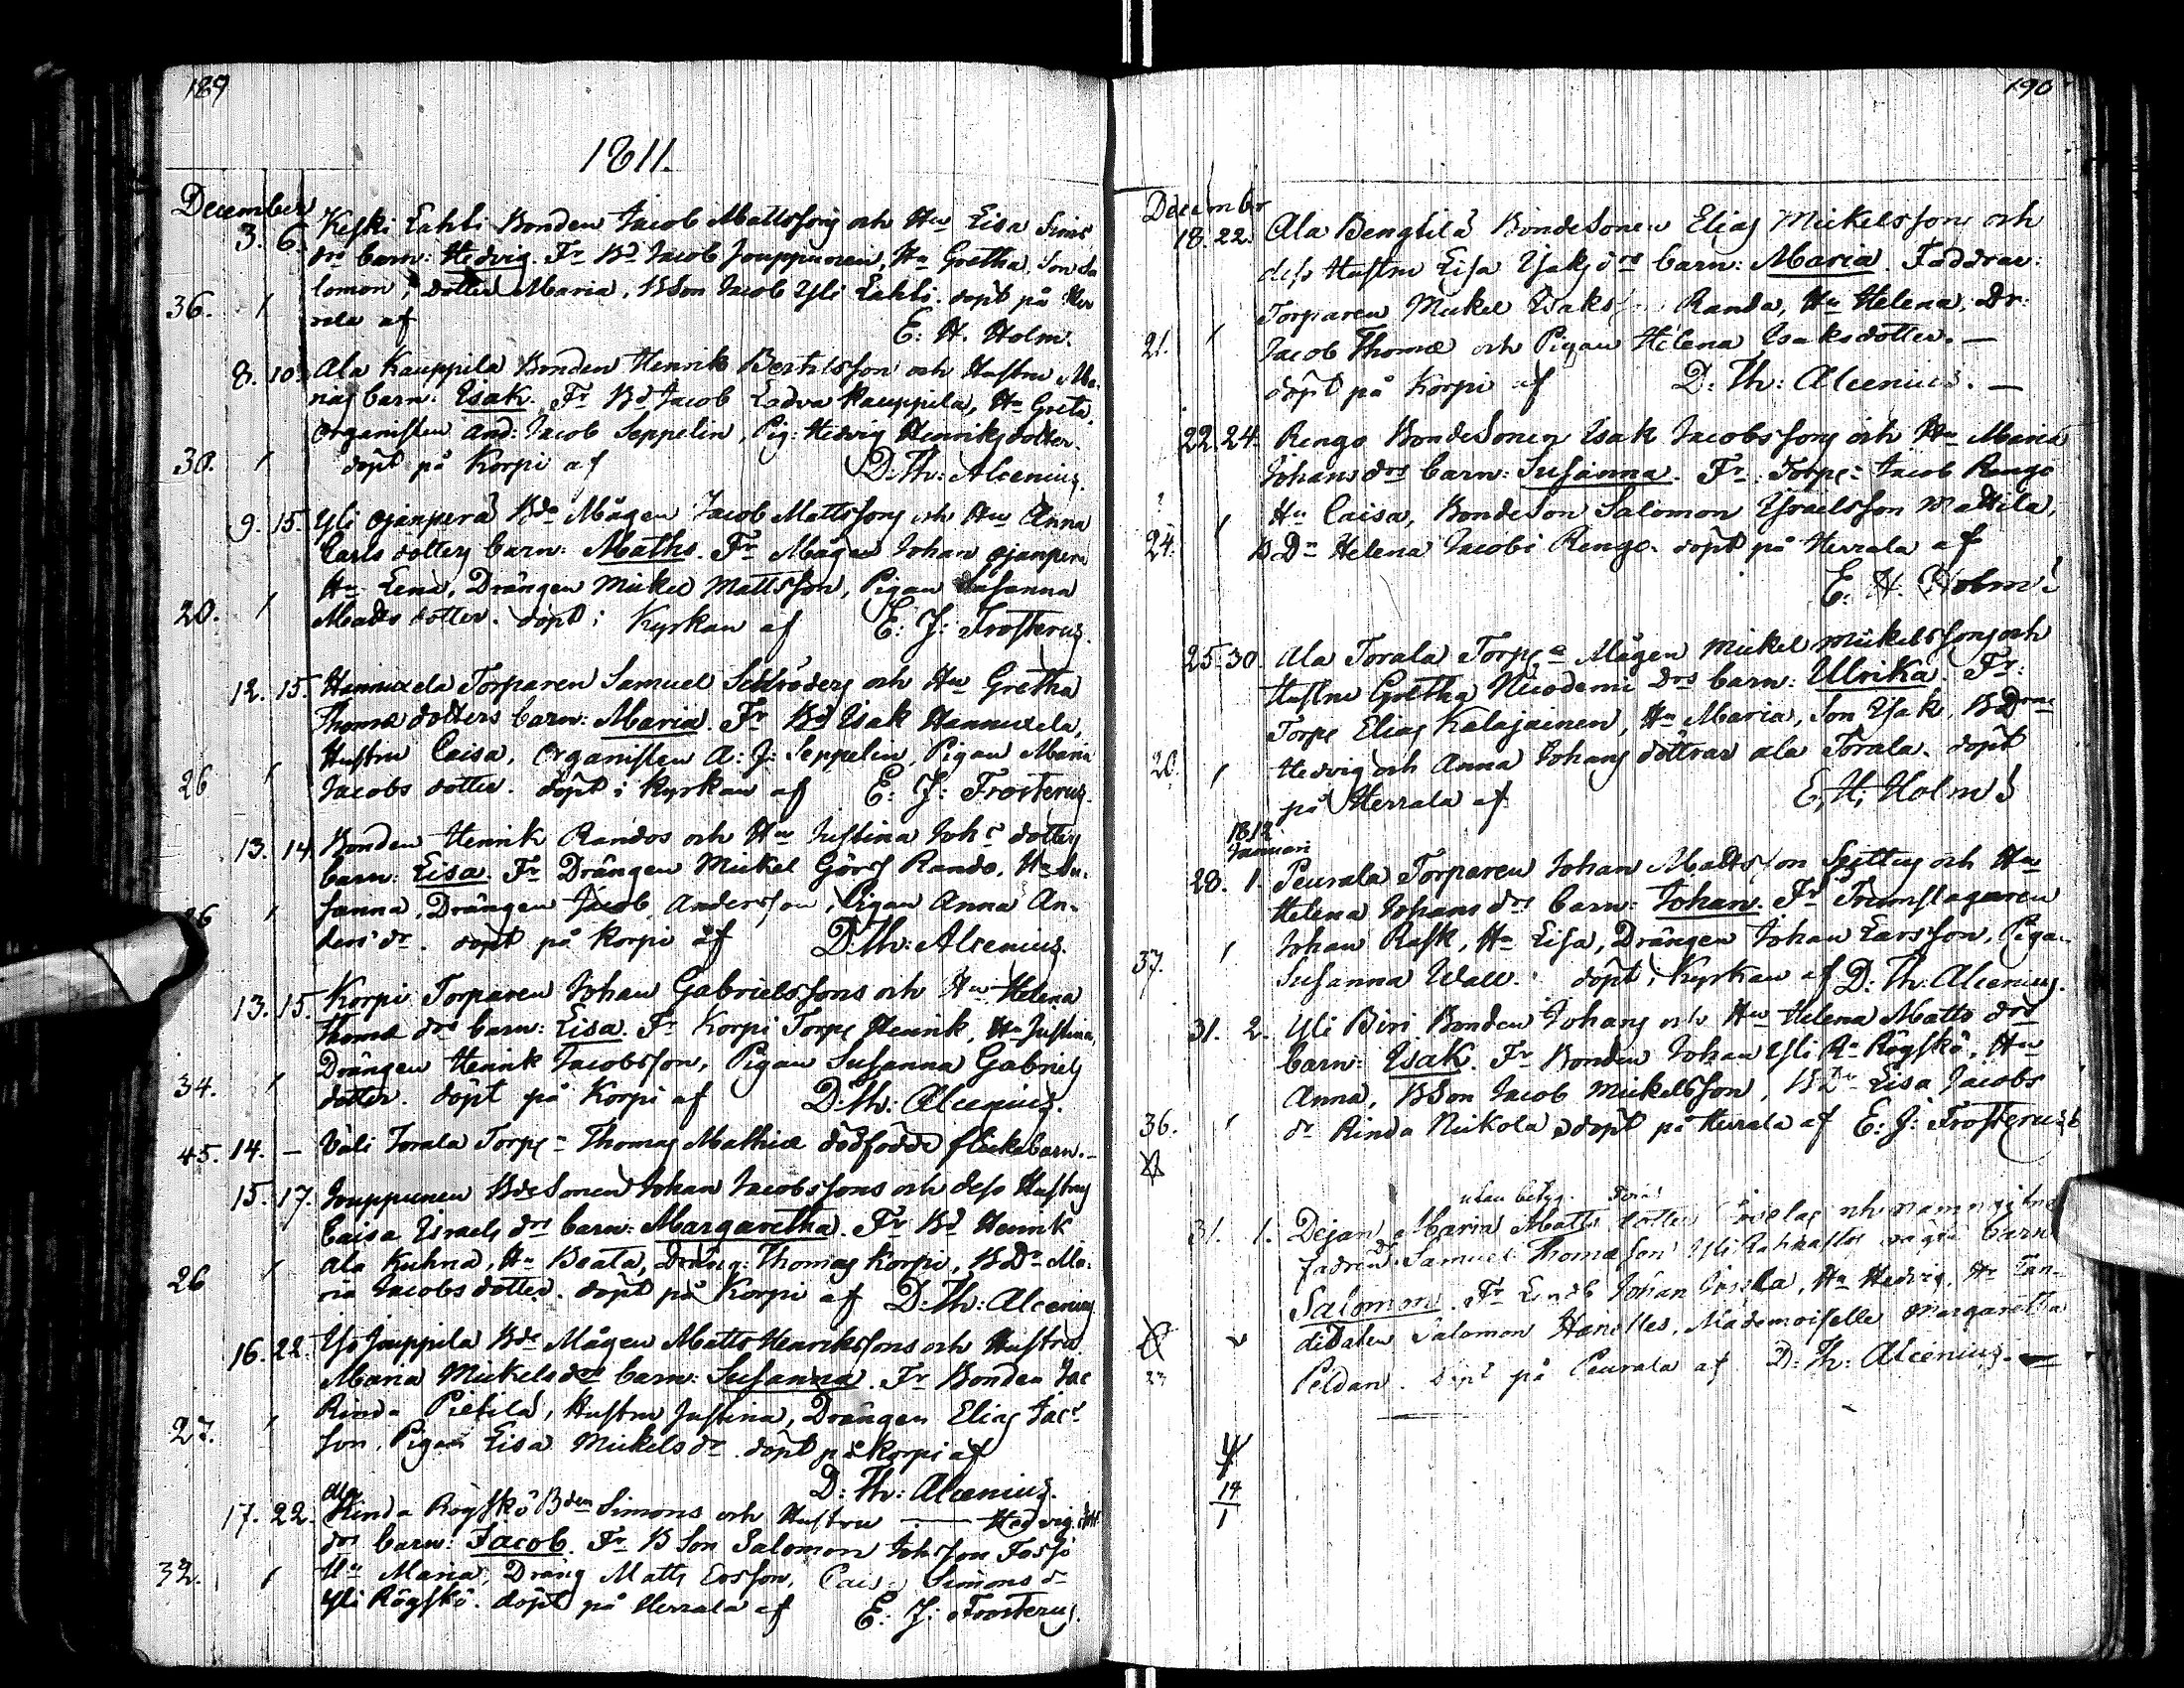 189
1811.
December
3. 6. Keski Lahti Bonden Jacob Mattssons och Hu Lisa Sims
drs barn: Hedvig. Fr Bd Jacob Jouppunen, Hu Gretha, Son Sa
lomon, dotter Maria, BSon Jacob Yli Lahti. döpt på Her
36. rala af E: H. Holm.
8. 10. Ala Kauppila Bonden Henrik Bertilsson och Hustru Ma-
rias barn: Isak. Fr Bd Jacob Ladva Kauppila, Hu Greta,
Organisten And: Jacob Seppelin, Pig: Hedvig Henriksdotter.
30. döpt på Korpi af D: Th: Alcenius.
9. 15. Yli Ojanperä Bde Mågen Jacob Mattssons och Hu Anna
Carls dotters barn: Maths. Fr Mågen Johan Ojanperä
Hu Lena, Drängen Mickel Mattsson, Pigan Susanna
20. Matts dotter. döpt i Kyrkan af E: J: Frosterus.
12. 15. Hannuxela Torparen Samuel Schröders och Hu Gretha
Thomæ dotters barn: Maria. Fr Bd Isak Hannuxela,
Hustru Caisa, Organisten A: J: Seppelin, Pigan Maria
26 Jacobs dotter. döpt i Kyrkan af E: J: Frosterus.
13. 14. Bonden Henrik Randos och Hu Justina Johs dotters
barn: Lisa. Fr Drängen Mickel Görs Rando, Hu Su-
sanna, Drängen Jacob Andersson, Pigan Anna An-
26 ders dr. döpt på Korpi af D: Th: Alcenius.
13. 15. Korpi Torparen Johan Gabrielssons och Hu Helena
Thomæ drs barn: Lisa. Fr Korpi Torp: Henrik, Hu Justina,
Drängen Henrik Jacobsson, Pigan Susanna Gabriels
34. dotter. döpt på Korpi af D: Th: Alcenius.
45. 14. — Väli Torala Torp: Thomas Mathiæ dödfödde flickebarn.-
15. 17. Jouppunen BdeSonen Johan Jacobssons och dess Hustrus
Caisa Israels drs barn: Margaretha. Fr Bd Henrik
Ala Kuhna, Hu Beata, Dräng: Thomas Korpi, BDr Ma-
26 ria Jacobsdotter. döpt på Korpi af D: Th: Alcenius
16. 22. Iso Jouppila Bde Mågen Matts Henrikssons och Hustru
Maria Mickels drs barn: Susanna. Fr Bonden Jac
Rinda Pietilä, Hustru Justina, Drängen Elias Jacs
27. son, Pigan Lisa Mickels dr. döpt på Korpi af
D: Th: Alcenius.
Ala
17. 22. Rinda Röyskö Bden Simons och Hustru — Hedvig
drs barn: Jacob. Fr BSon Salomon Johsson
Hu Maria, Dräng Matts Ersson, Caisa Simons dr
32. Yli Röyskö. döpt på Herrala af E: J: Frosterus.
190
December
18. 22. Ala Bengtilä BondeSonen Elias Mickelssons och
dess Hustru Lisa Isaks drs barn: Maria. Faddrar:
Torparen Mickel Isakss Randa, Hu Helena, Dr:
21. Jacob Thomæ och Pigan Helena Isaksdotter. —
döpt på Korpi af D: Th: Alcenius. —
22. 24. Rengo BondeSonen Isak Jacobssons och Hu Maria
Johans drs barn: Susanna. Fr: Torp: Jacob Rengo
Hu Caisa, BondeSon Salomon Israelsson Mattila,
24. BDr Helena Jacobi Rengo. döpt på Herrala af
E. H. Holm
25. 30. Ala Torala Torpe Mågen Mickel Mickelssons och
Hustru Gretha Nicodemi Drs barn: Ulrika. Fr:
Torp Elias Kalajainen, Hu Maria, Son Isak, BDrar
20. Hedvig och Anna Johans döttrar Ala Torala. döpt
på Herrala af E: H: Holm
1812
Januari
28. 1. Peurala Torparen Johan Mattsson och Hu
Helena Johans drs barn: Johan. Fr Trumslagaren
Johan Rask, Hu Lisa, Drängen Johan Larsson, Pigan
37. Susanna Wall. döpt i Kyrkan af D: Th: Alcenius.
31. 2. Yli Biri Bonden Johans och Hu Helena Matts drs
barn: Isak. Fr Bonden Johan Yli Ra Röyskö, Hu
Anna, BSon Jacob Mickelsson, BDr Lisa Jacobs
36. dr Rinda Nikola, döpt på Herrala af E: J: Frosterus
utan betyg.
31. 1. Dejan Maria Matts dotter och namngifne
fadren Dr Samuel Thomæson Yli barn
Salomon. Fr Johan, Hu Hedvig, Hr Can-
didaten Salomon Hanelles, Mademoiselle Margaretha
23 Peldan. döpt på Peurala af D: Th: Alcenius. —
4
14
1